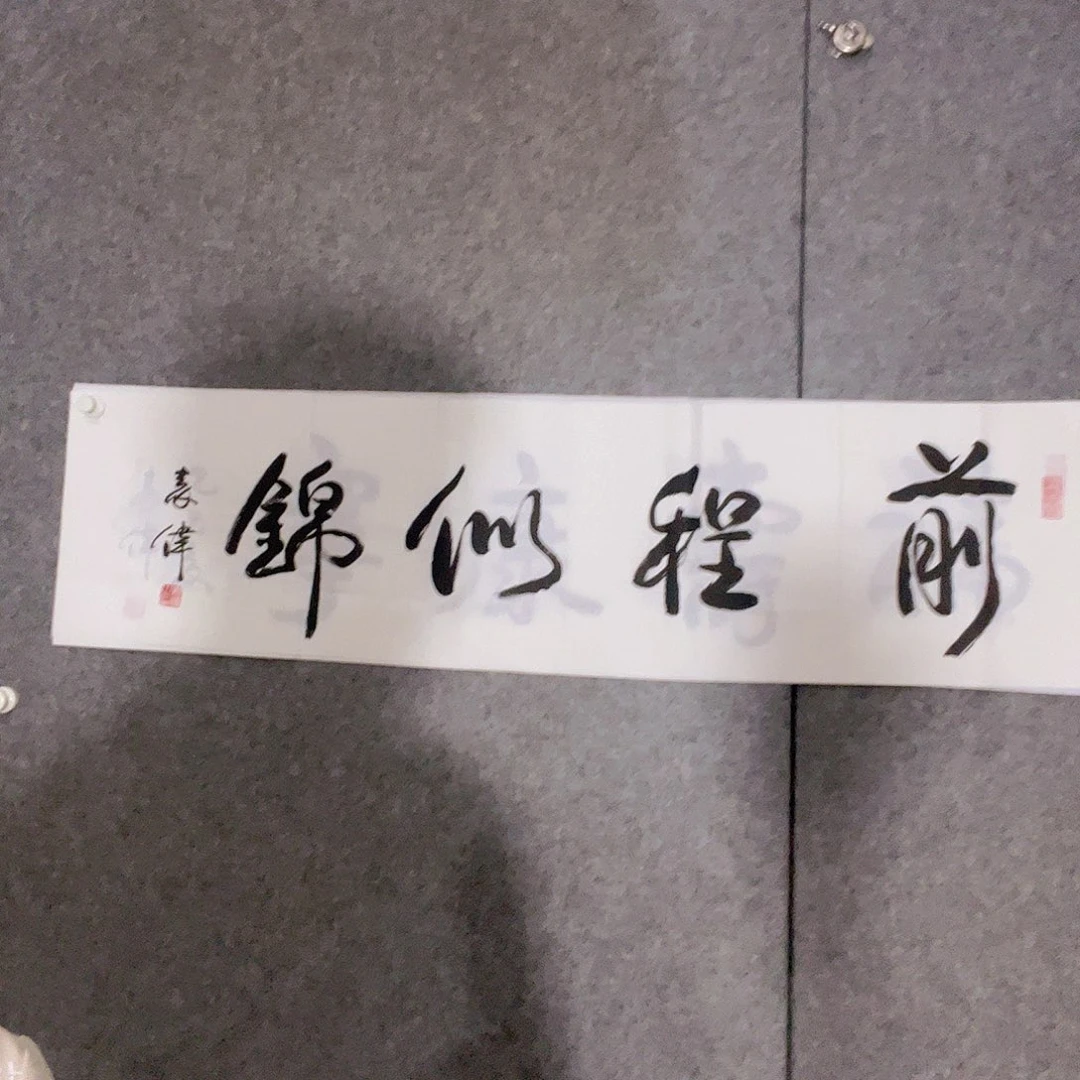 前程似錦
袁偉